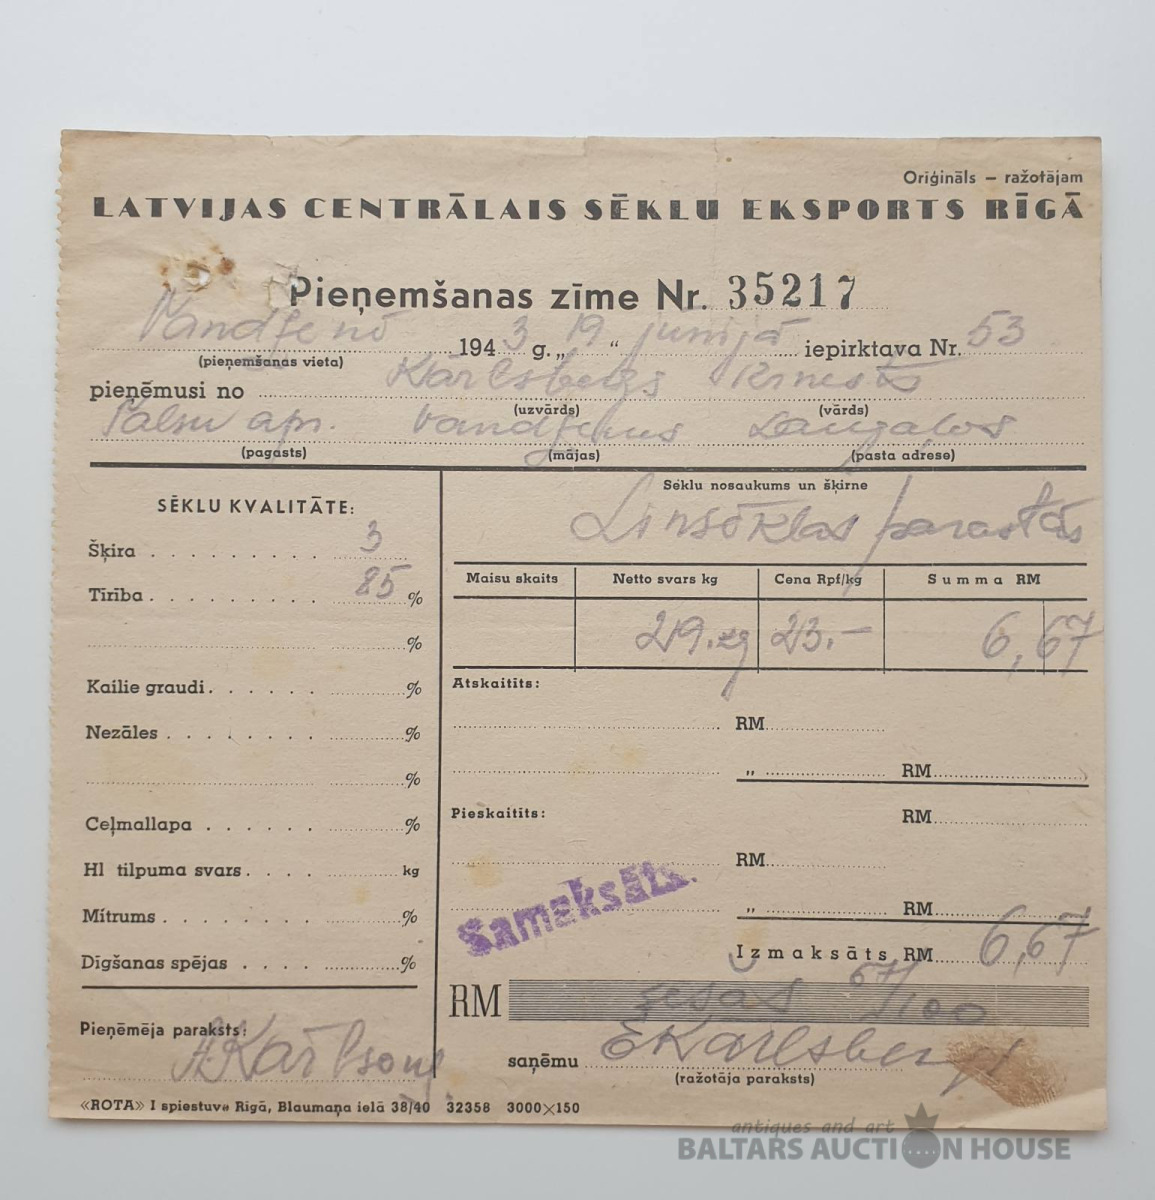 Oriģināls – ražotājam
LATVIJAS CENTRĀLAIS SĒKLU EKSPORTS RĪGĀ
Pieņemšanas zīme Nr. 35217
Vandženē 1943 g. „19“ jūnijā iepirktava Nr. 53
(pieņemšanas vieta)
pieņēmusi no Kārlsbergs Ernests
(uzvārds) (vārds)
Palsu apr. Vandženus
(pagasts) (mājas) (pasta adrese)
SĒKLU KVALITĀTE:
Šķira 3
Tirība 85 %
%
Kailie graudi %
Nezāles %
%
Ceļmallapa %
Hl tilpuma svars kg
Mitrums %
Dīgšanas spējas %
Pieņēmēja paraksts:
AKārlsons
Sēklu nosaukums un šķirne
Linsēklas parastās
Maisu skaits Netto svars kg Cena Rpf/kg Summa RM
29.kg 23.– 6,67
Atskaitīts:
RM
„ RM
Pieskaitīts: RM
RM
„ RM
Samaksāts.
Izmaksāts RM 6,67
RM sešas 67/100
saņēmu EKārlsbergs
(ražotāja paraksts)
«ROTA» I spiestuve Rīgā, Blaumaņa ielā 38/40 32358 3000×150
antiques and art
BALTARS AUCTION HOUSE